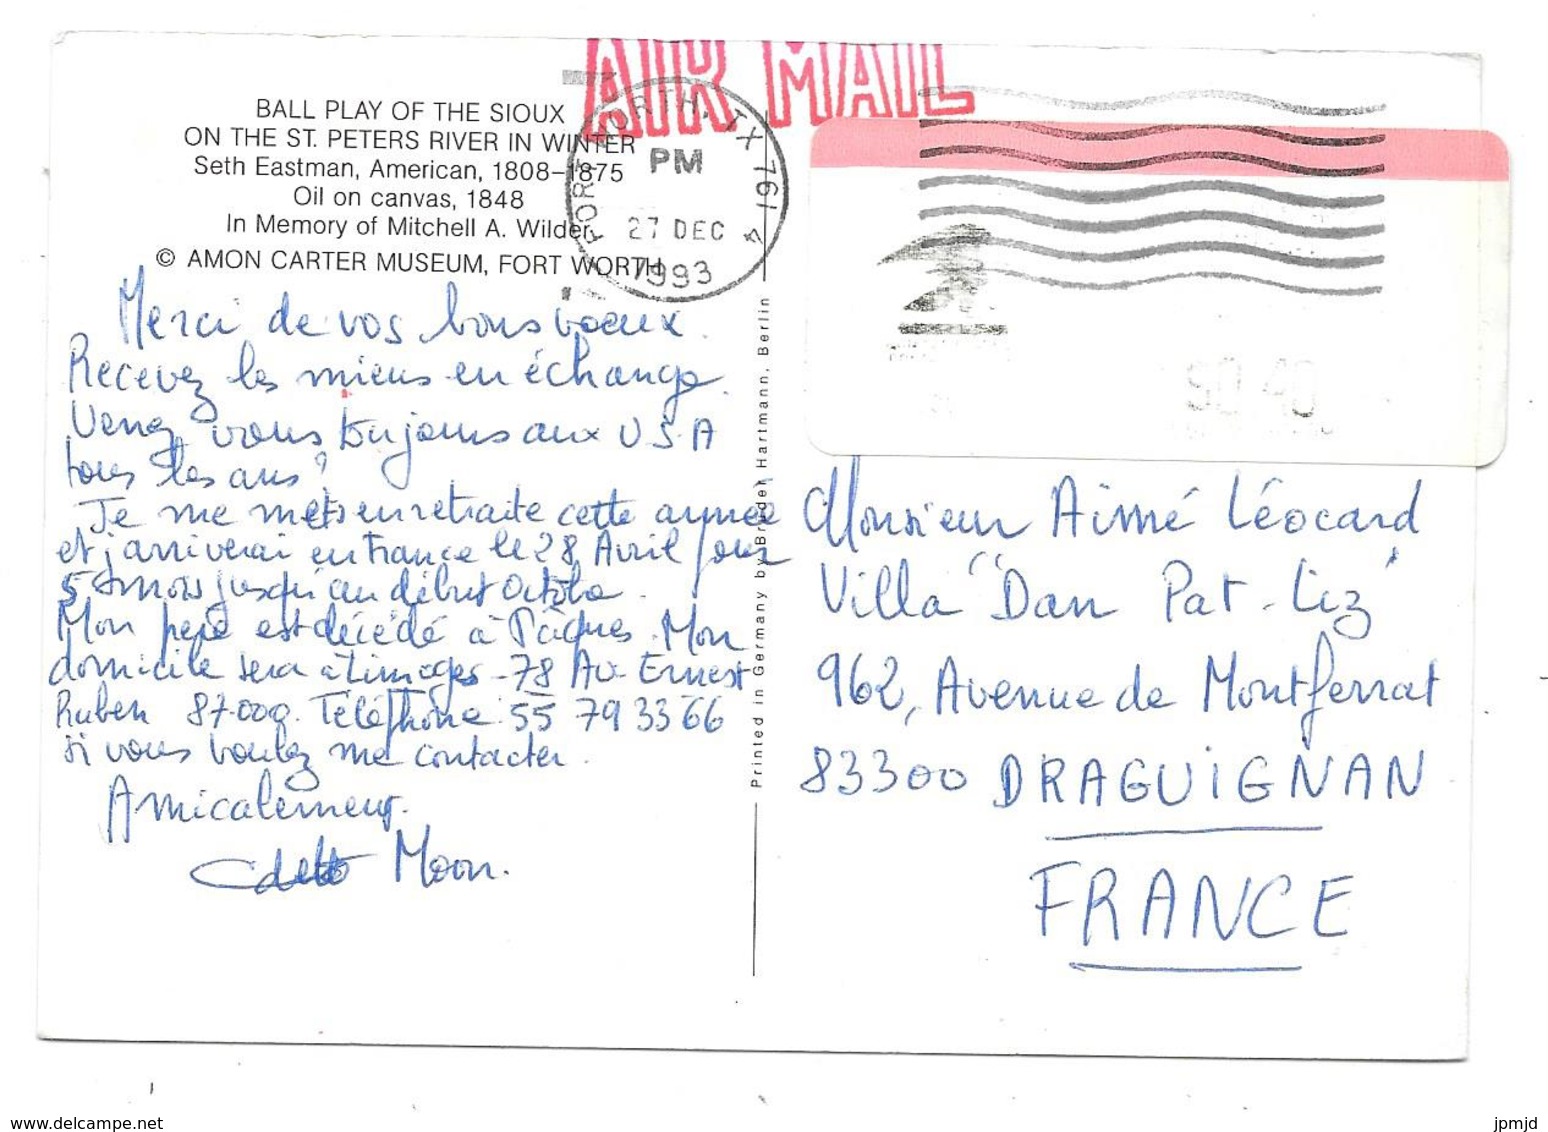 AIR MAIL
BALL PLAY OF THE SIOUX
ON THE ST. PETERS RIVER IN WINTER
Seth Eastman, American, 1808–1875
Oil on canvas, 1848
In Memory of Mitchell A. Wilder
© AMON CARTER MUSEUM, FORT WORTH
FORT WORTH, TX 761 4
PM
27 DEC
1993
$0.40
Merci de vos bons voeux.
Recevez les miens en échange.
Venez vous toujours aux U.S.A
tous les ans?
Je me mets en retraite cette année
et j'arriverai en France le 28 Avril pour
5 mois jusqu'au début Octobre.
Mon père est décédé à Pâques. Mon
domicile sera à Limoges - 78 Av. Ernest
Ruben 87.000. Téléphone: 55 79 33 66
si vous voulez me contacter.
Amicalement.
Moon.
Printed in Germany by Bruder Hartmann, Berlin
Monsieur Aimé Léocard
Villa "Dan Pat-Liz"
962, Avenue de Montferrat
83300 DRAGUIGNAN
FRANCE
www.delcampe.net
jpmjd